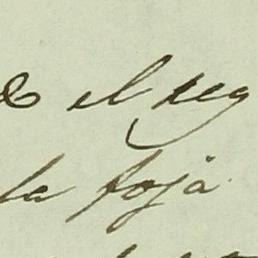 el reg
la foja